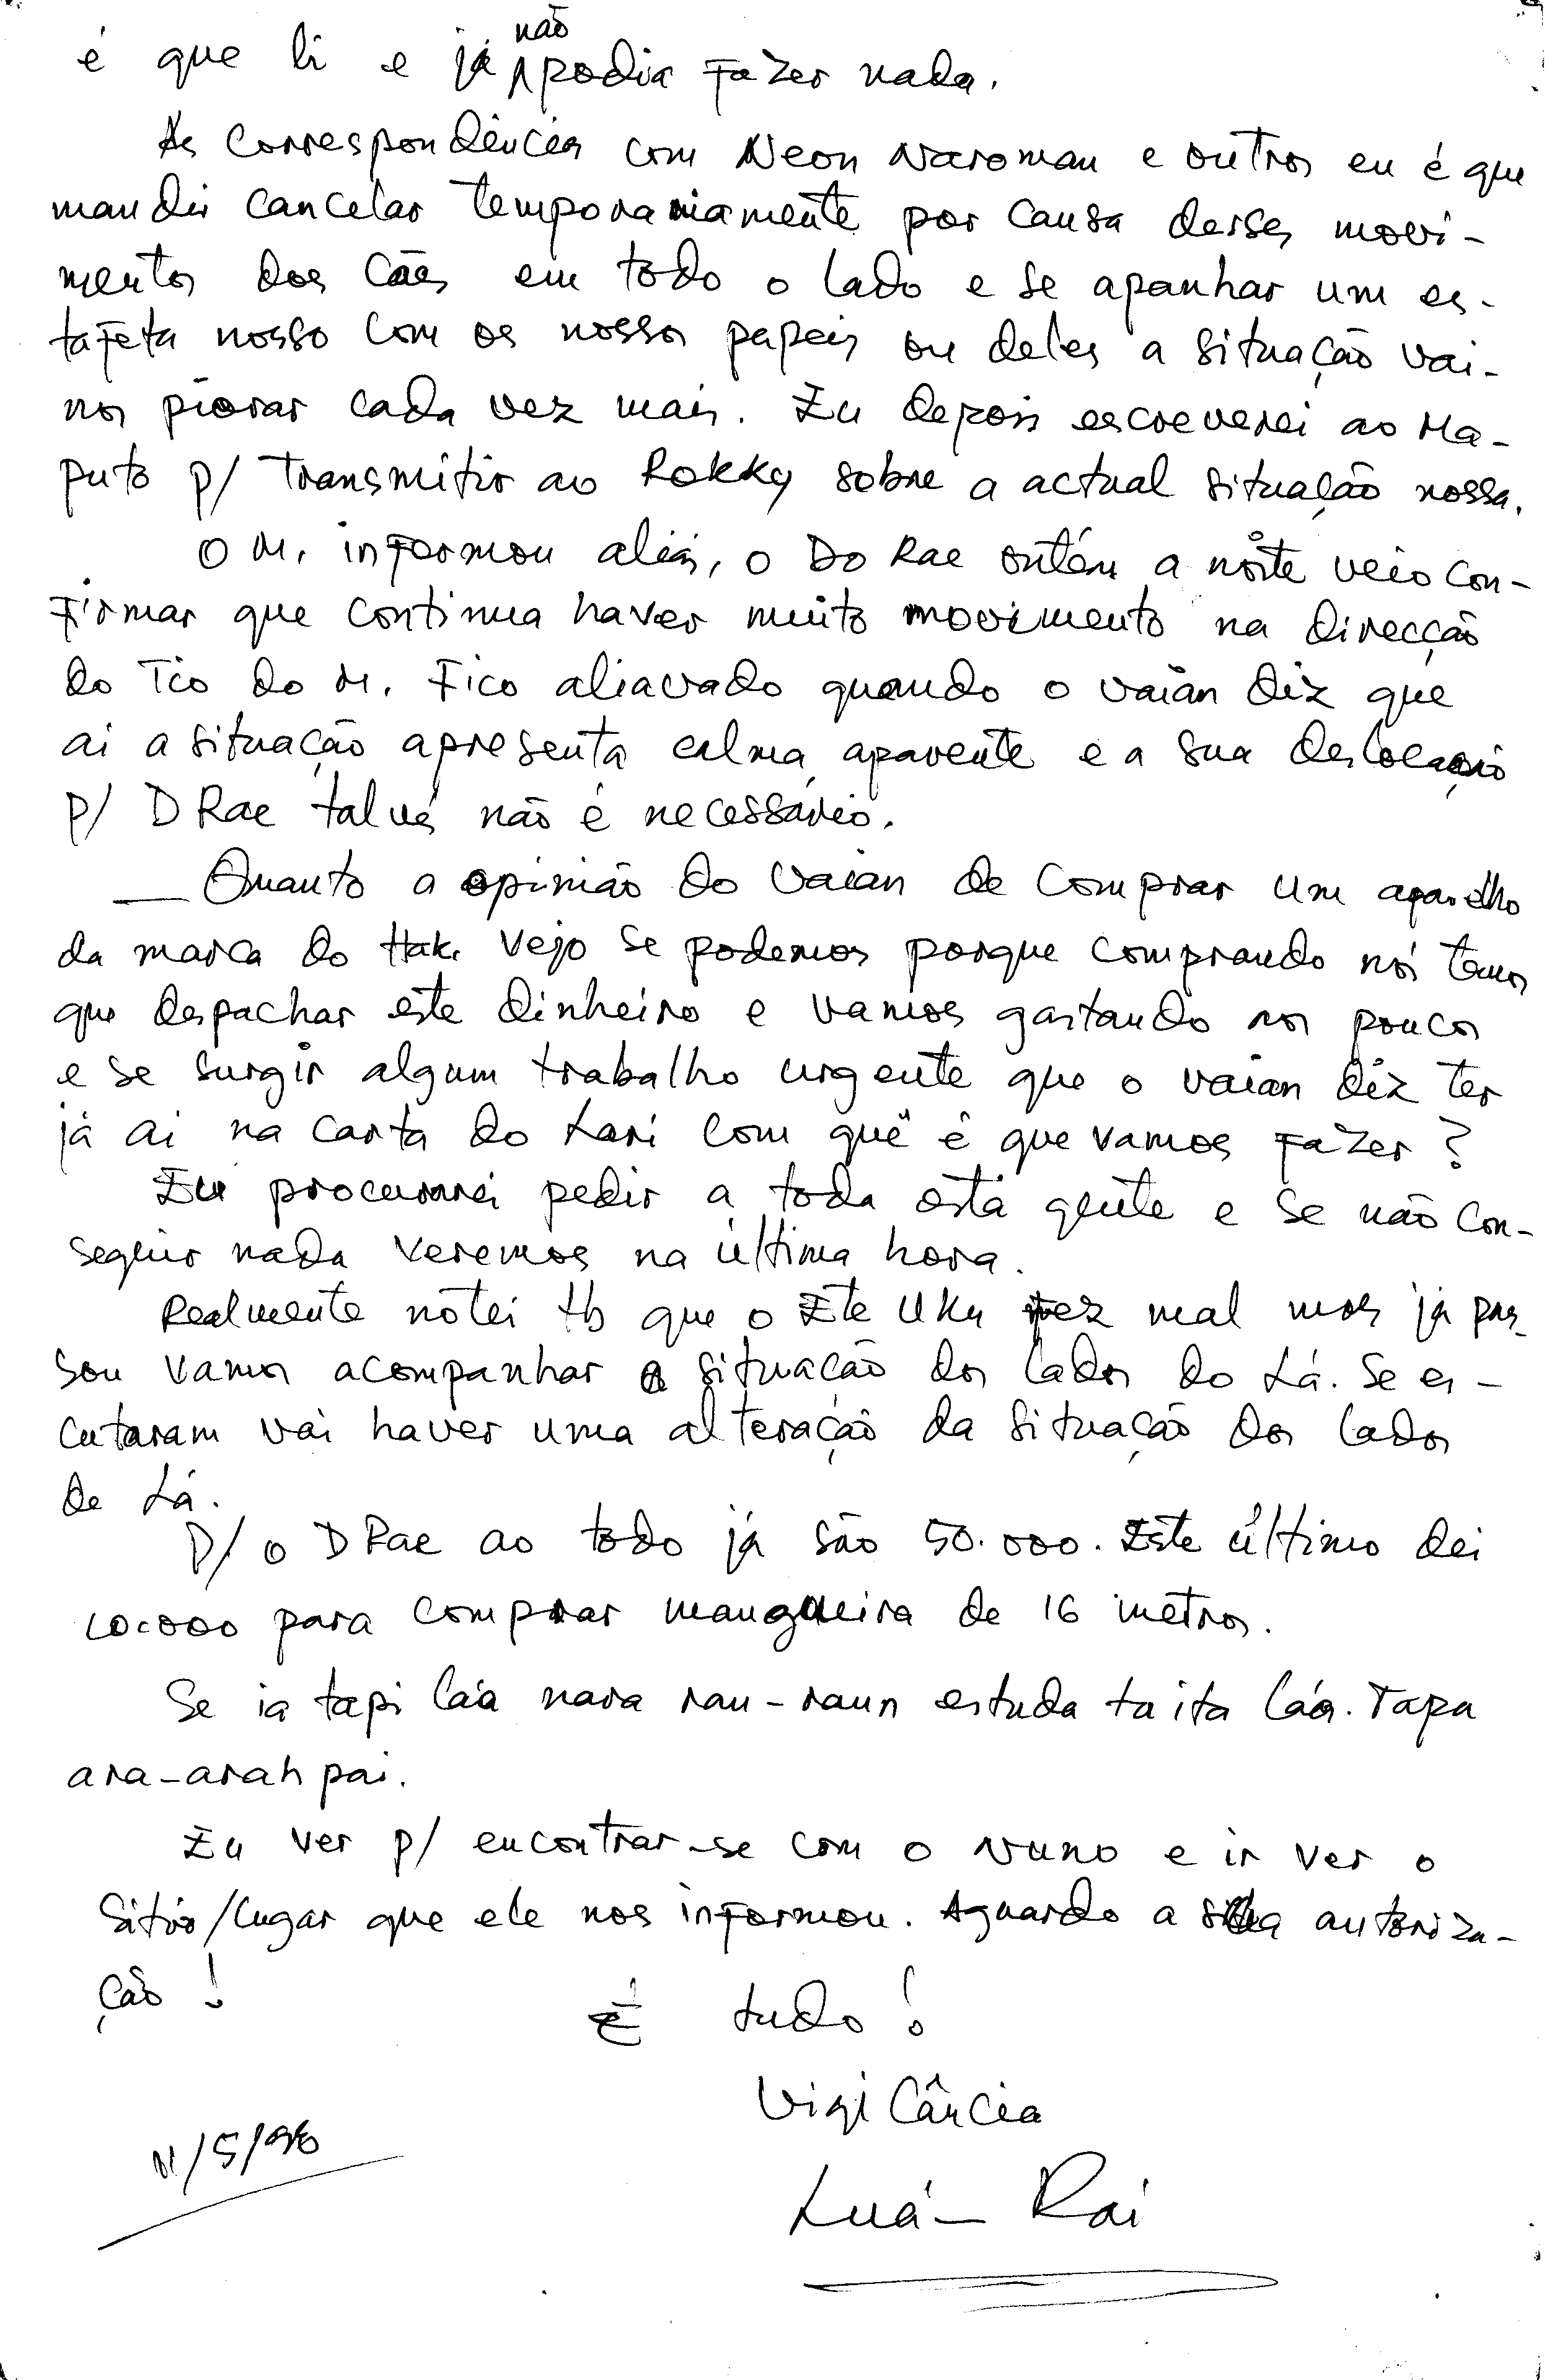 é que li e já não podia fazer nada.
As Correspondências com Neon Naroman e outros eu é que
mandei cancelar temporariamente por causa desses movi-
mentos dos Cães em todo o lado e se apanhar um es-
tafeta nosso com os nossos papeis ou deles a situação vai-
nos piorar cada vez mais. Eu depois escreverei ao Ma-
puto p/ transmitir ao Rokky sobre a actual situação nossa.
O M. informou aliás, o Do Rae ontém a noite veio con-
firmar que continua haver muito movimento na direcção
do Tio do M. Fico aliavado quando o Vaian diz que
ai a situação apresenta calma aparente e a sua deslocação
p/ D Rae talvés não é necessário.
— Quanto a opinião do Vaian de comprar um aparelho
da marca do Hak. Vejo se podemos porque comprando nós temos
que despachar este dinheiro e vamos gastando aos poucos
e se surgir algum trabalho urgente que o Vaian diz ter
já ai na carta do Lari com quê é que vamos fazer?
Eu procurarei pedir a toda esta gente e se não con-
seguir nada veremos na última hora.
Realmente notei tb que o Ete Uku fez mal mas já pas-
sou vamos acompanhar a situação dos lados do Lá. Se es-
cutaram vai haver uma alteração da situação dos lados
de Lá.
P/ o D Rae ao todo já são 50.000. Este último dei
10.000 para comprar mangueira de 16 metros.
Se ia tapi láa nara rau-raun estuda ta ita láa. Tapa
ara-arah pai.
Eu ver p/ encontrar-se com o Nuno e ir ver o
Sítio/lugar que ele nos informou. Aguardo a sua autoriza-
ção!
É tudo!
Vigi Lância
Luá - Rai
11/5/96